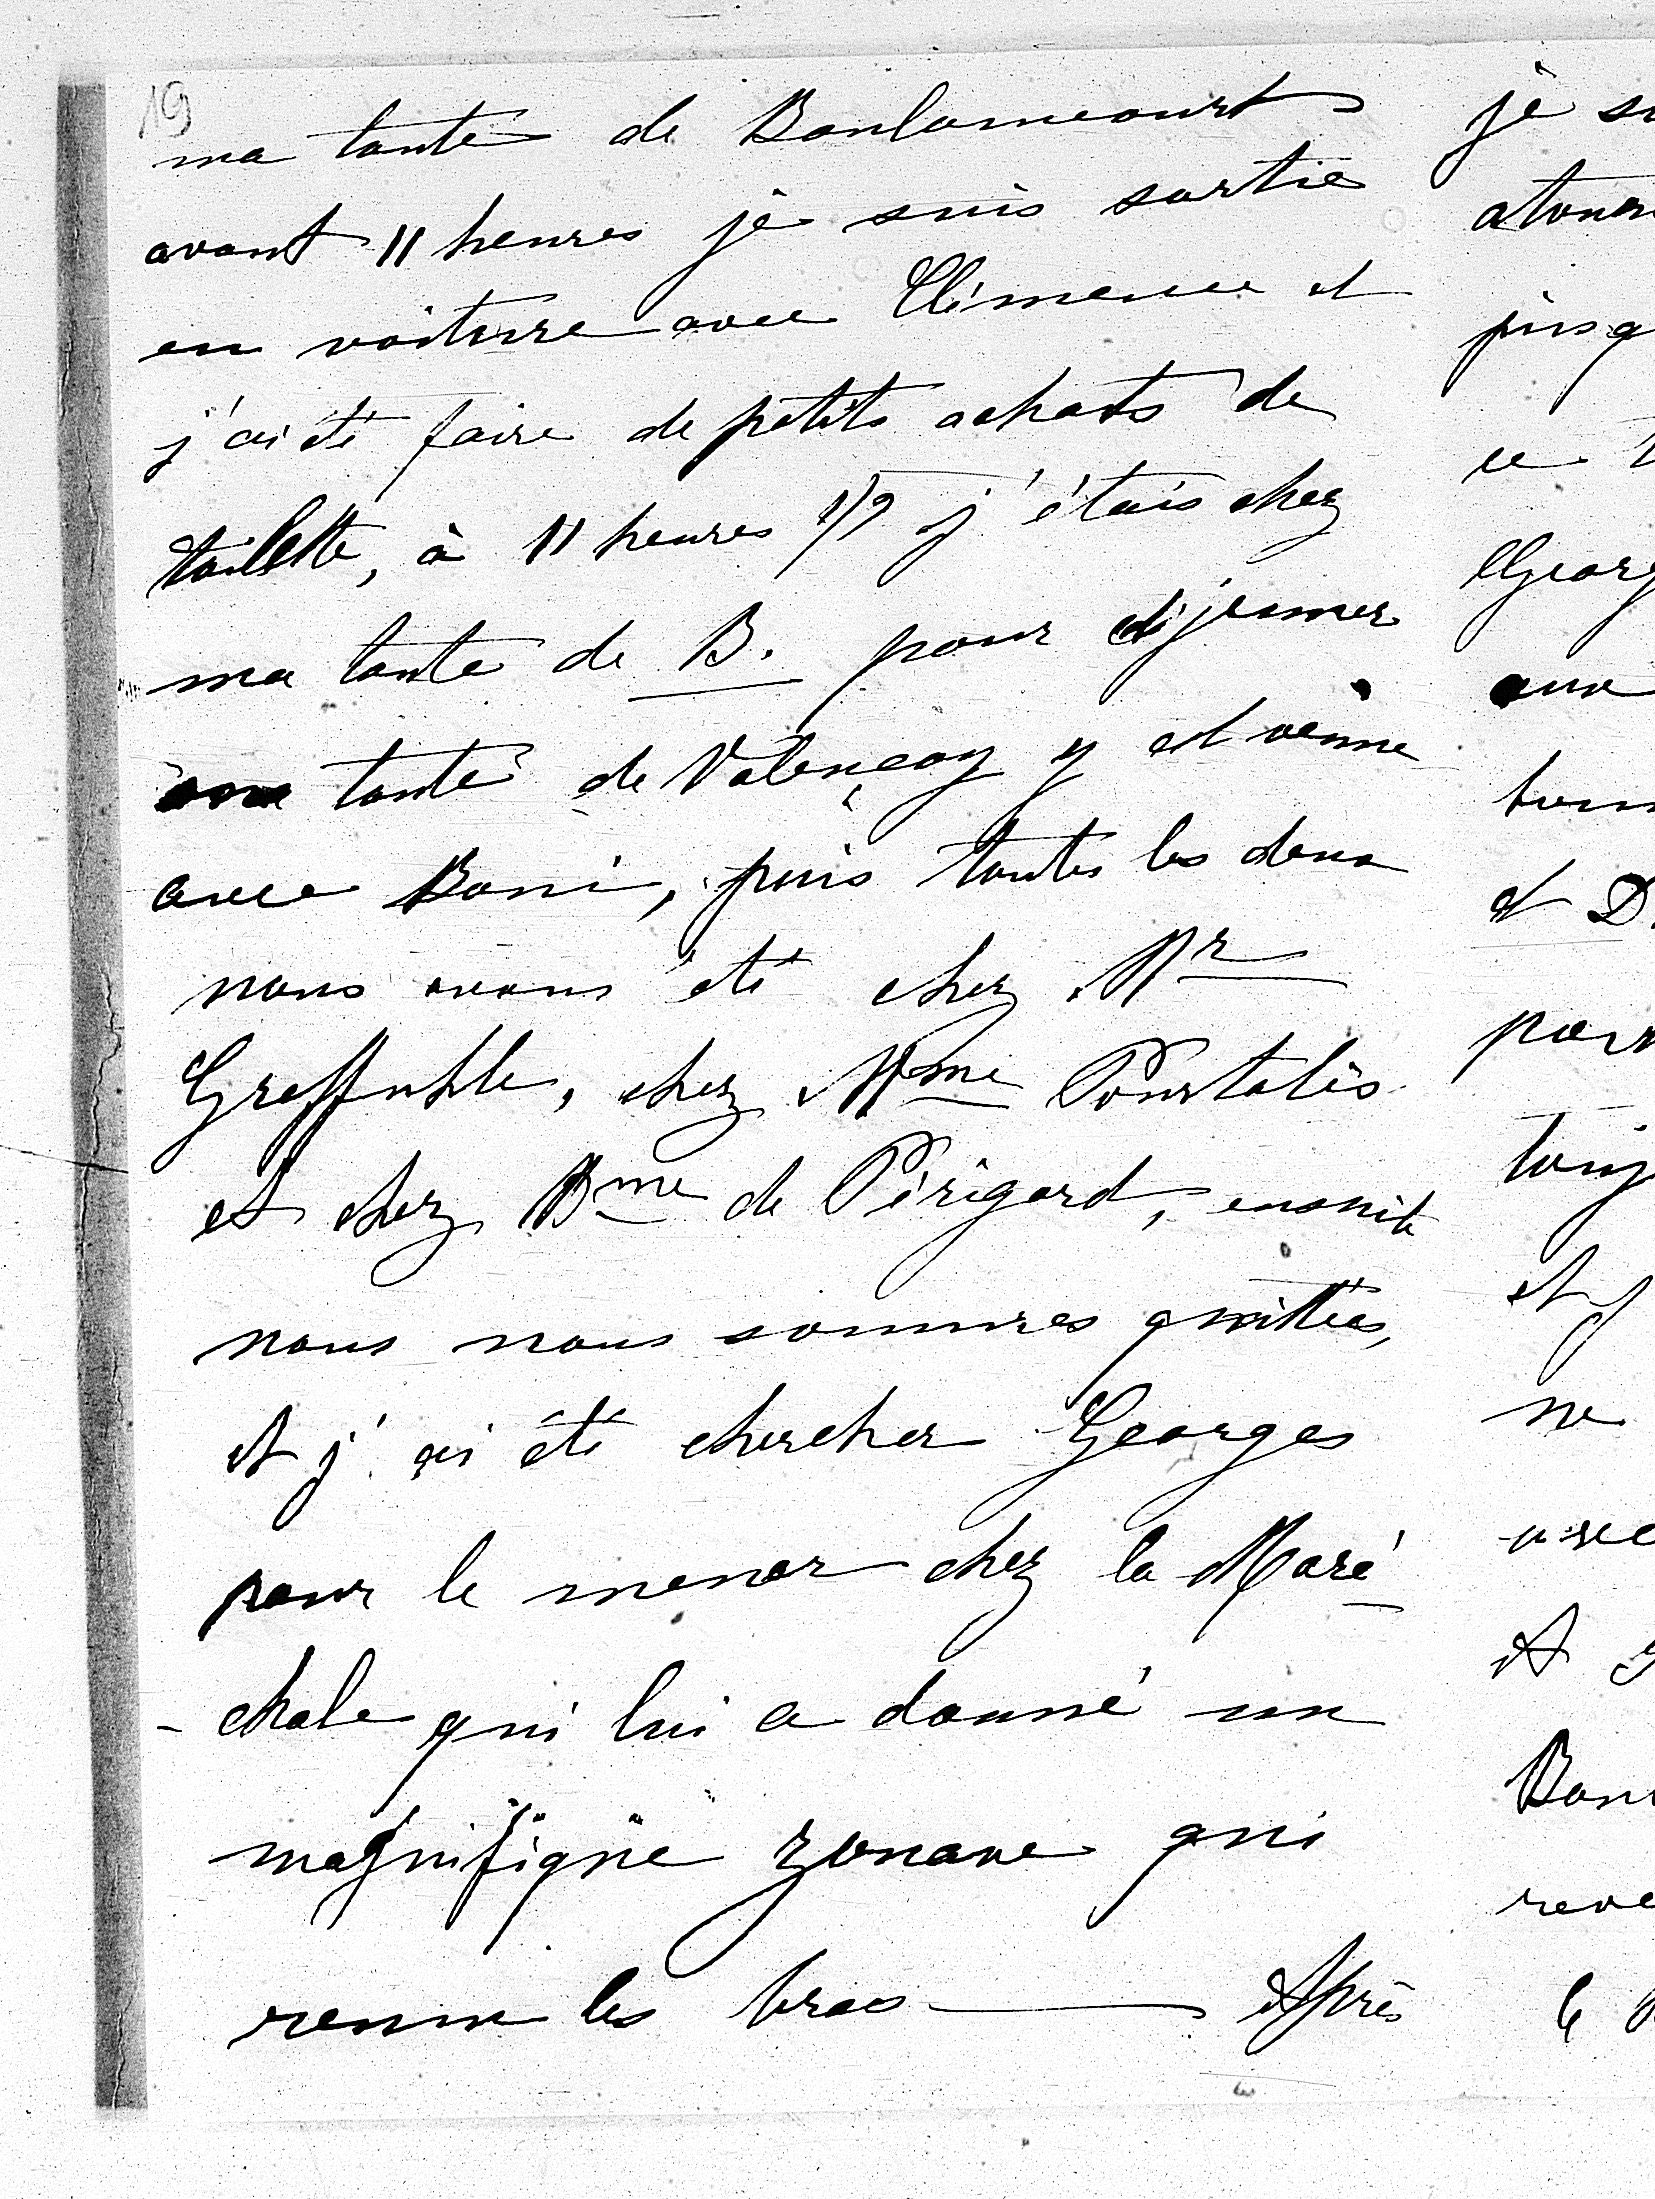 19
ma tante de Boulaincourt
avant 11 heures je suis sortie
en voiture avec Clémence et
j'ai été faire de petits achats de
toilette, à 11 heures 1/2 j'étais chez
ma tante de B. pour déjeuner
ma tante de Valençay y est venue
avec Boni, puis toutes les deux
nous avons été chez Mr
Greffuhle, chez Mme Pourtalès
et chez Mme de Périgord, ensuite
nous nous sommes quittées,
et j'ai été chercher Georges
pour le mener chez la Maré
- chale qui lui a donné un
magnifique zouave qui
remue les bras — Après